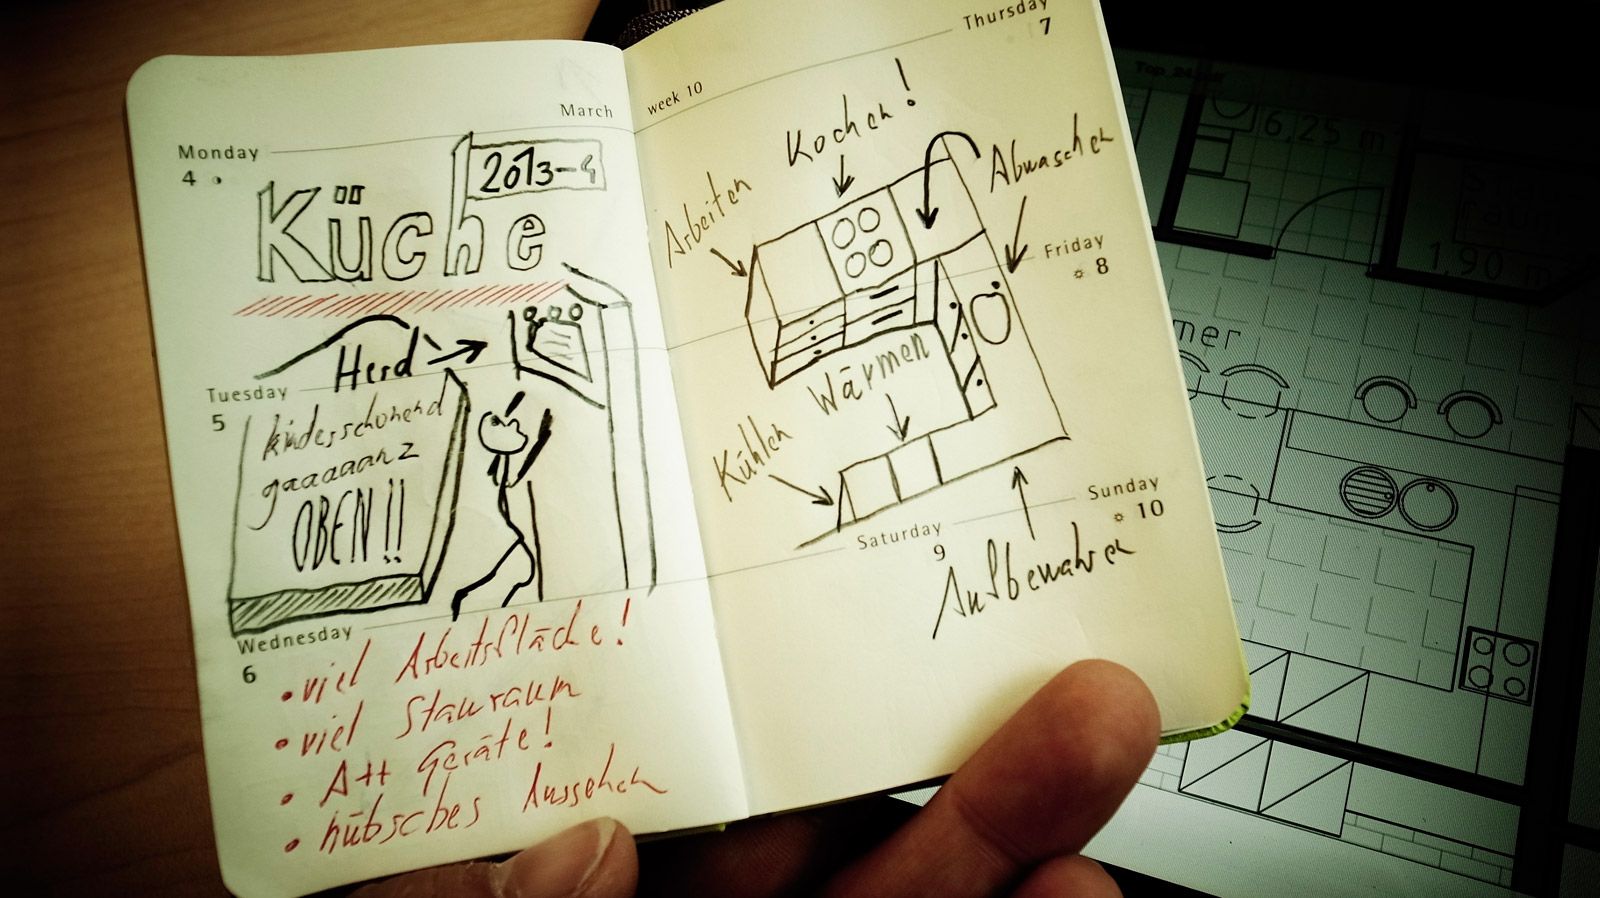 March
Monday
4
2013-4
Küche
Herd
Tuesday
5
kinderschonend
gaaaaanz
OBEN!!
Wednesday
6
• viel Arbeitsfläche!
• viel Stauraum
• A++ Geräte!
• hübsches Aussehen
week 10
Thursday
7
Kochen!
Arbeiten
Abwaschen
Friday
8
Wärmen
Kühlen
Saturday
9
Sunday
10
Aufbewahren
6,25 m
1,90 m
mer